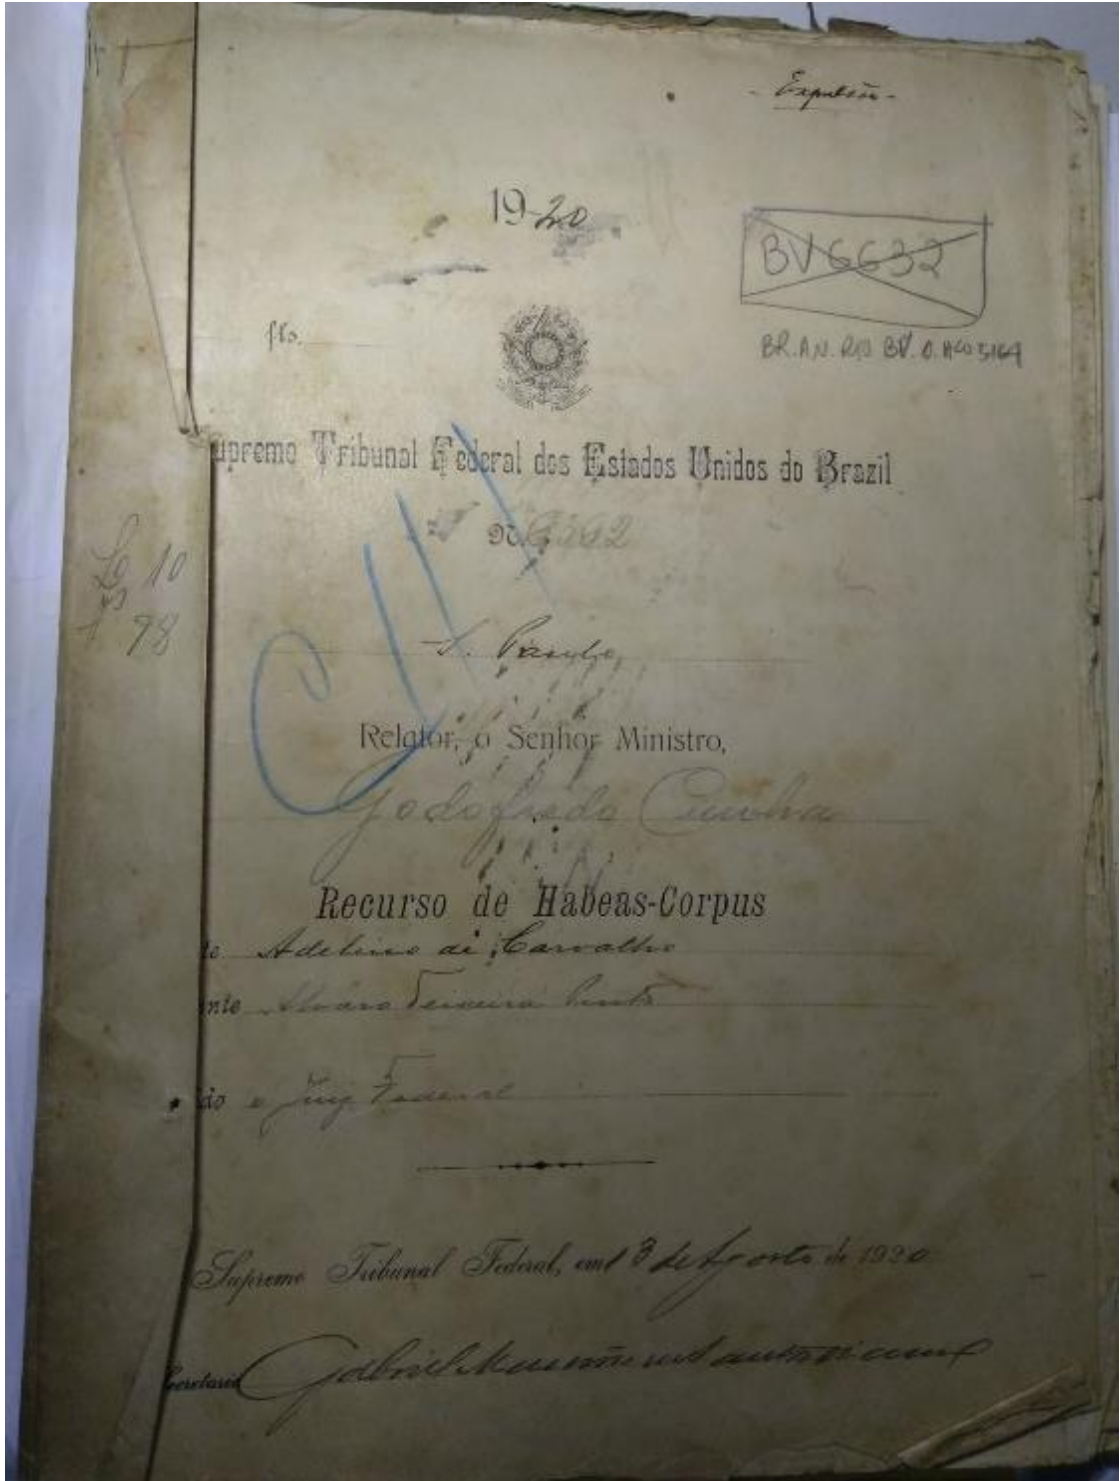 - Expulsão -
19-20
BV 6632
fls.
BR.AN. RIO BV. 0. HCO 5169
upremo Tribunal Federal dos Estados Unidos do Brazil
Nº 6392
Lo 10
78
S. Paulo,
Relator, o Senhor Ministro,
Godofredo Cunha
Recurso de Habeas-Corpus
te Adelino de Carvalho
nte Alvaro Teixeira Pinto
do o Juiz Federal
Supremo Tribunal Federal, em 13 de Agosto de 1920
Secretario Gabriel